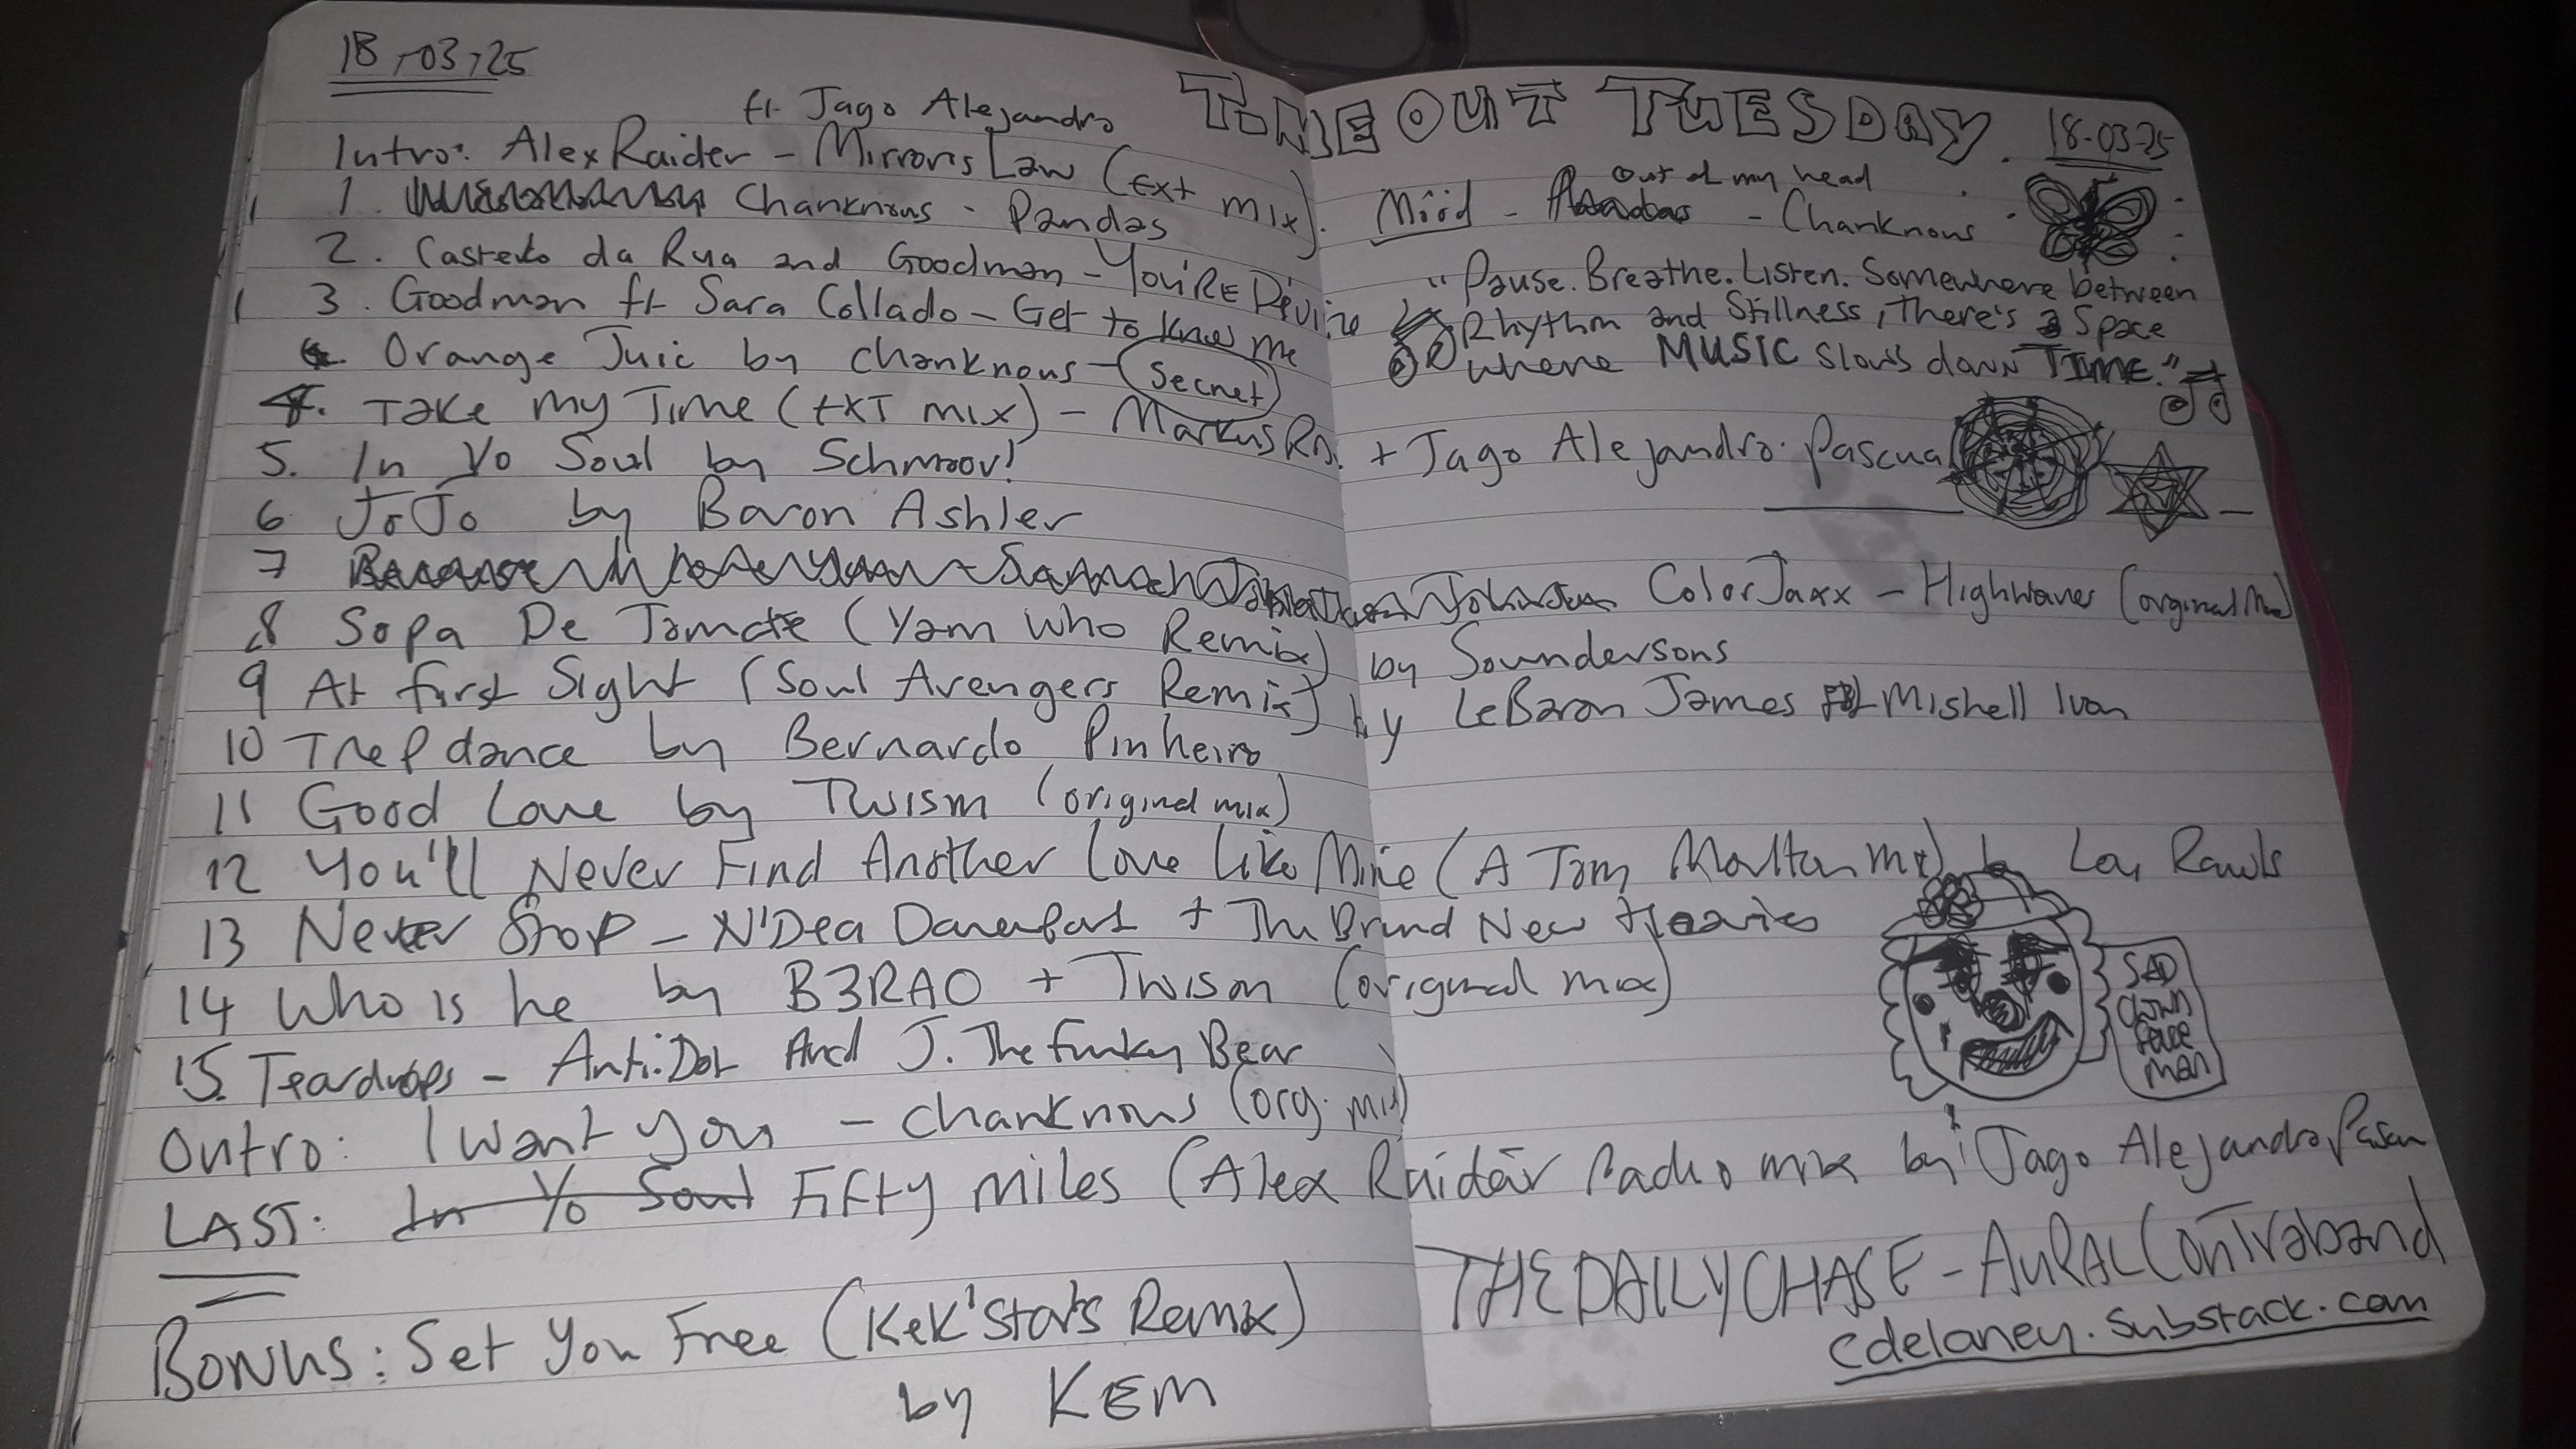 18-03-25
ft. Jago Alejandro
Intro: Alex Raider - Mirrors Law (Ext mix).
1. Chanknous - Pandas
2. Castelo da Rua and Goodman - YOU'RE Divine
3. Goodman ft Sara Collado - Get to know me
Orange Juic by Chanknous - Secret
4. Take my Time (EXT mix) - Markus Ro.
5. In Yo Soul by Schmoov!
6 JoJo by Baron Ashler
7 ColorJaxx - Highwaves (orginal Mix)
8 Sopa De Tomate (Yam Who Remix) by Soundersons
9 At first Sight (Soul Avengers Remix) by LeBaron James Mishell Ivon
10 Trep dance by Bernardo Pinheiro
11 Good Love by Twism (original mix)
12 You'll Never Find Another Love Like Mine (A Tom Moulton mx) b Lou Rawls
13 Never Stop - N'Dea Davenport + The Brand New Heavies
14 Who is he by B3RAO + Twism (original mix)
15. Teardrops - Anti.Dot And J. The Funky Bear
Outro: I Want You - Chanknous (org. mix)
LAST: In Yo Soul Fifty Miles (Alex Raidër Radio mix by Jago Alejandro Pascua
BONUS: Set You Free (Kek'Stars Remix)
by KEM
TIME OUT TUESDAY. 18-03-25
Out of my head
Mööd - - Chanknous
"Pause. Breathe. Listen. Somewhere between
Rhythm and Stillness, There's a Space
where MUSIC slows down TIME."
+ Jago Alejandro Pascual
SAD
CLOWN
FACE
MAN
THE DAILY CHASE - AURAL CONTraband
cdelaney.substack.com